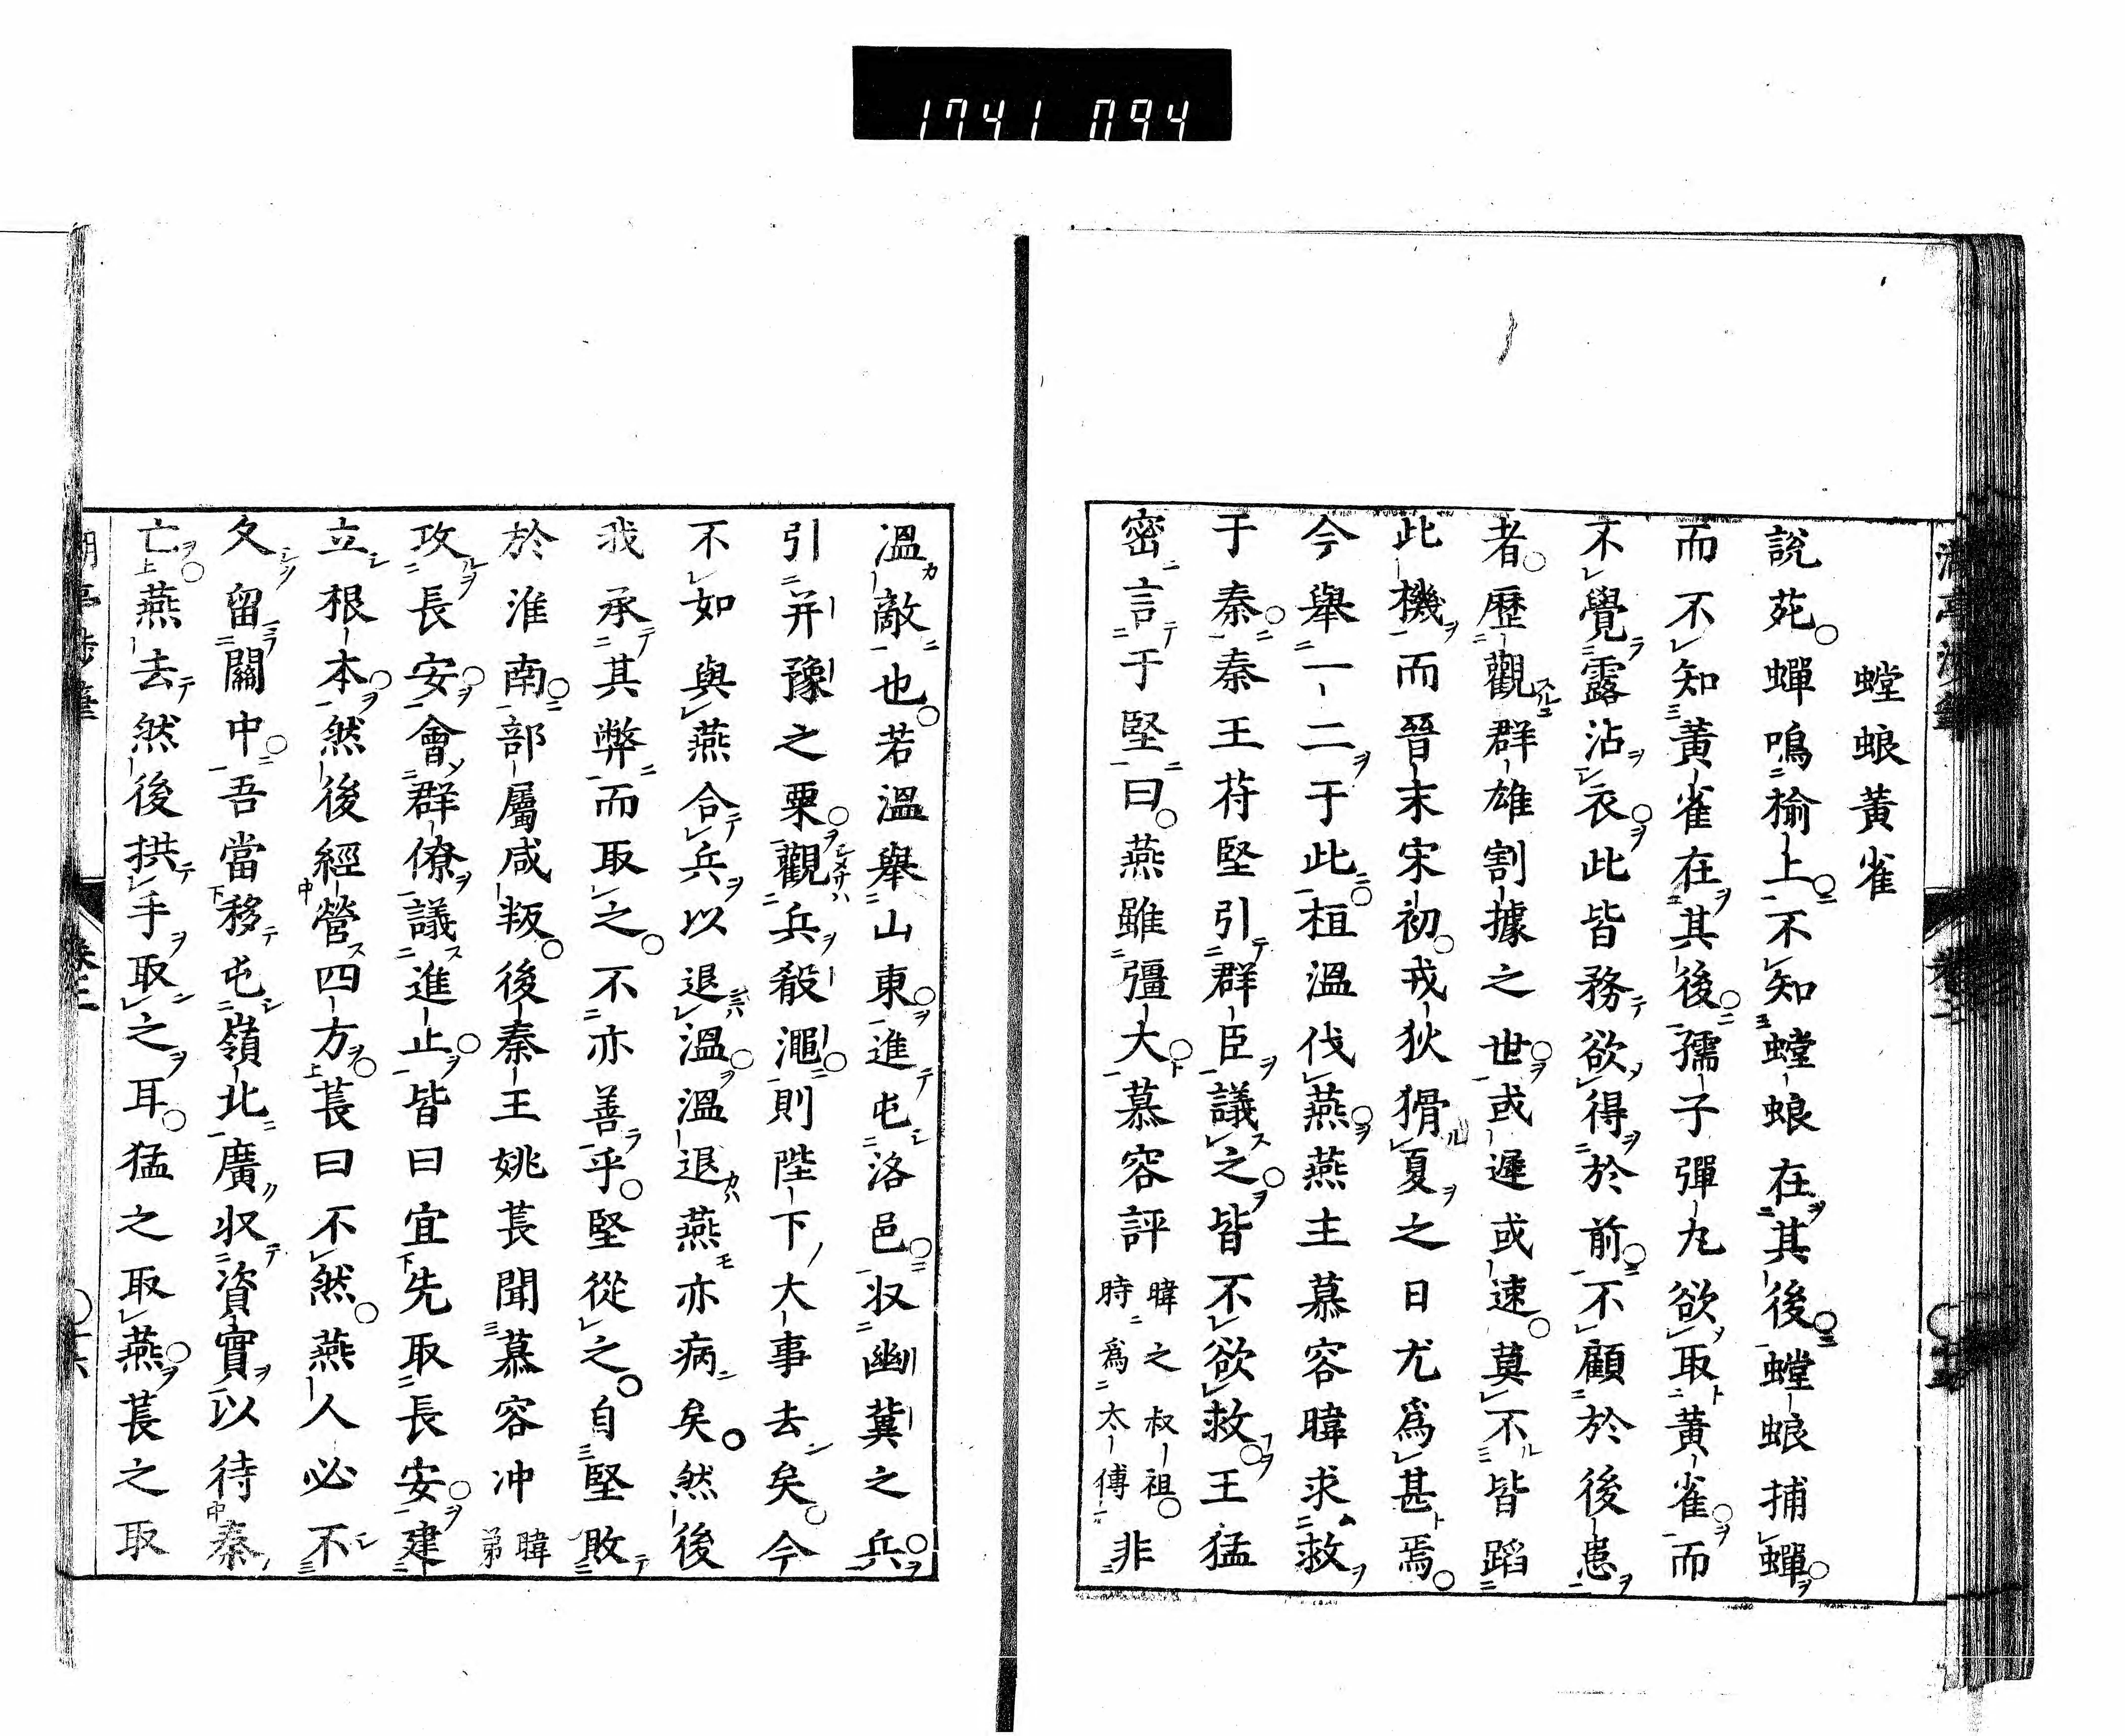 1741 094
螳蜋黃雀
說苑蟬鳴榆上不知螳蜋在其後螳蜋捕蟬
而不知黃雀在其後孺子彈丸欲取黃雀而
不覺露沾衣此皆務欲得於前不顧於後患
者歷觀群雄割據之世或遲或速莫不皆蹈
此機而晉末宋初戎狄猾夏之日尤爲甚焉
今舉一二于此桓溫伐燕燕主慕容暐求救
于秦秦王苻堅引群臣議之皆不欲救王猛
密言于堅曰燕雖彊大慕容評暐之叔祖時爲太傅非
溫敵也若溫舉山東進屯洛邑収幽冀之兵
引并豫之粟觀兵殽澠則陛下大事去矣今
不如與燕合兵以退溫溫退燕亦病矣然後
我承其弊而取之不亦善乎堅從之自堅敗
於淮南部屬咸叛後秦王姚萇聞慕容冲暐弟
攻長安會群僚議進止皆曰宜先取長安建
立根本然後經營四方萇曰不然燕人必不
久留關中吾當移屯嶺北廣収資實以待秦
亡燕去然後拱手取之耳猛之取燕萇之取